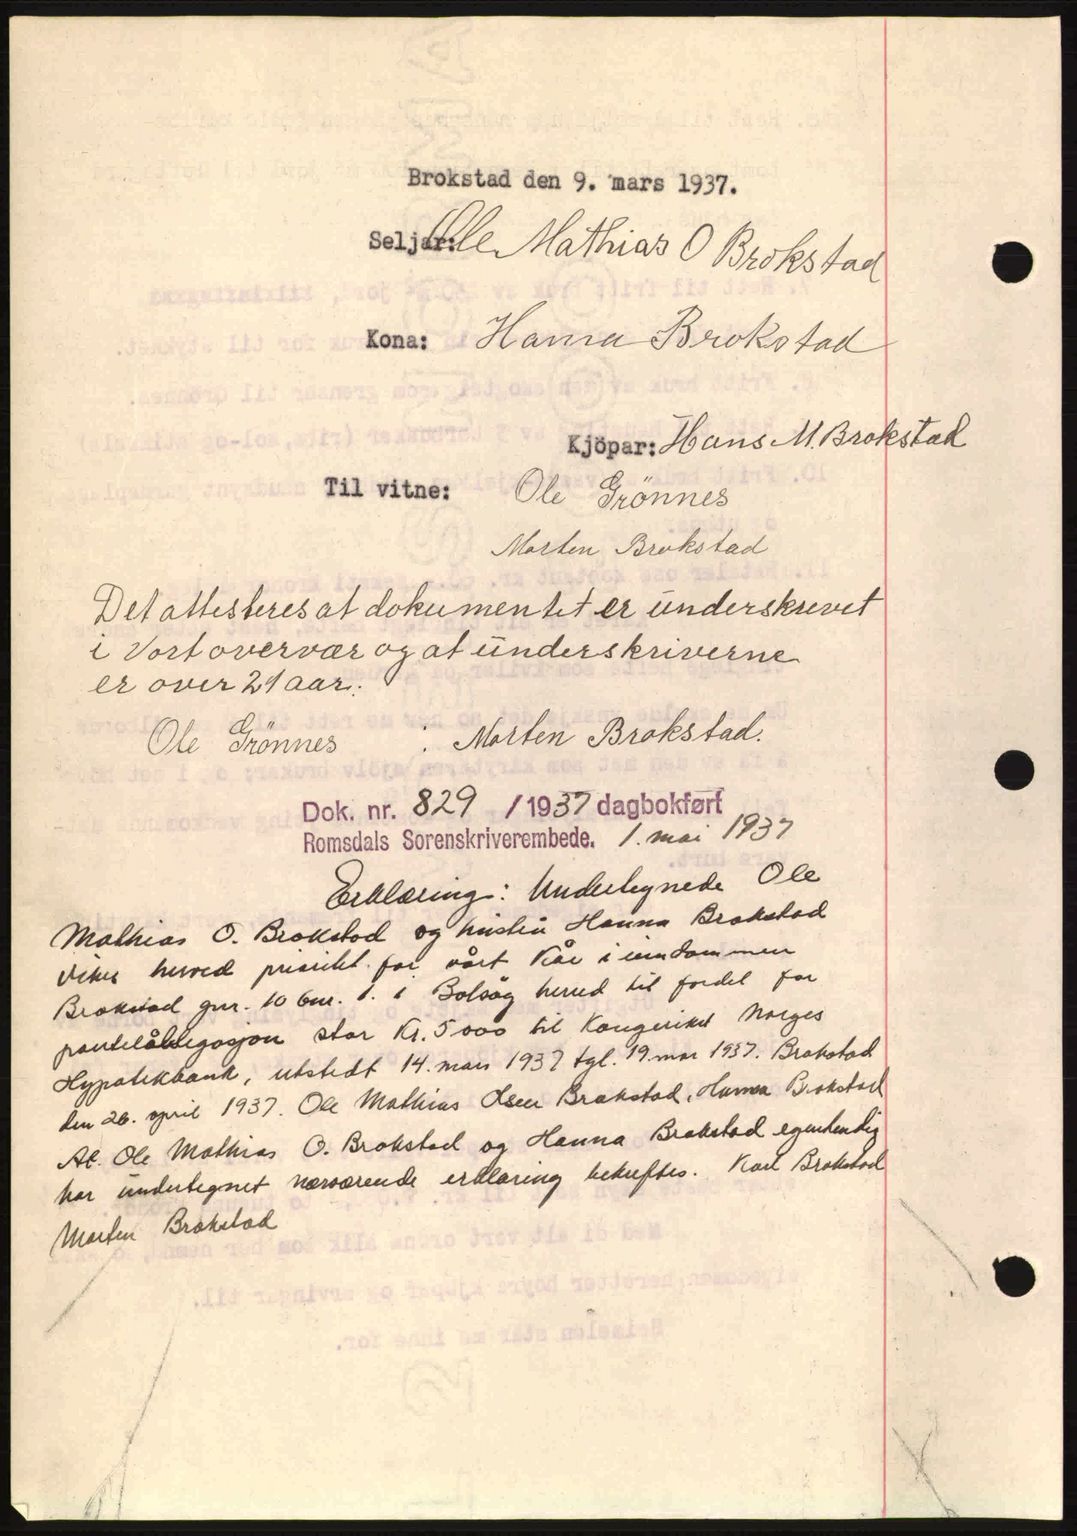 Brokstad den 9. mars 1937.
Seljar: Ole Mathias O Brokstad
Kona: Hanna Brokstad
Kjöpar: Hans M. Brokstad
Til vitne: Ole Grönnes
Morten Brokstad
Det attesteres at dokumentet er underskrevet
i vort overvær og at underskriverne
er over 21 aar:
Ole Grönnes : Morten Brokstad.
Dok. nr. 829 / 1937 dagbokført
Romsdals Sorenskriverembede. 1. mai 1937
Erklæring: Undertegnede Ole
Mathias O. Brokstad og hustru Hanna Brokstad
viker herved prioritet for vårt Kår i eiendommen
Brokstad gnr. 10 bnr. 1. i Bolsöy herred til fordel for
panteobligasjon stor Kr. 5000 til Kongeriket Norges
Hypotekbank, utstedt 14. mars 1937 tgl. 19. mar 1937. Brokstad
den 26. april 1937. Ole Mathias Olsen Brokstad, Hanna Brokstad
At Ole Mathias O. Brokstad og Hanna Brokstad egenhendig
har undertegnet nærværende erklæring bekreftes. Karl Brokstad
Morten Brokstad